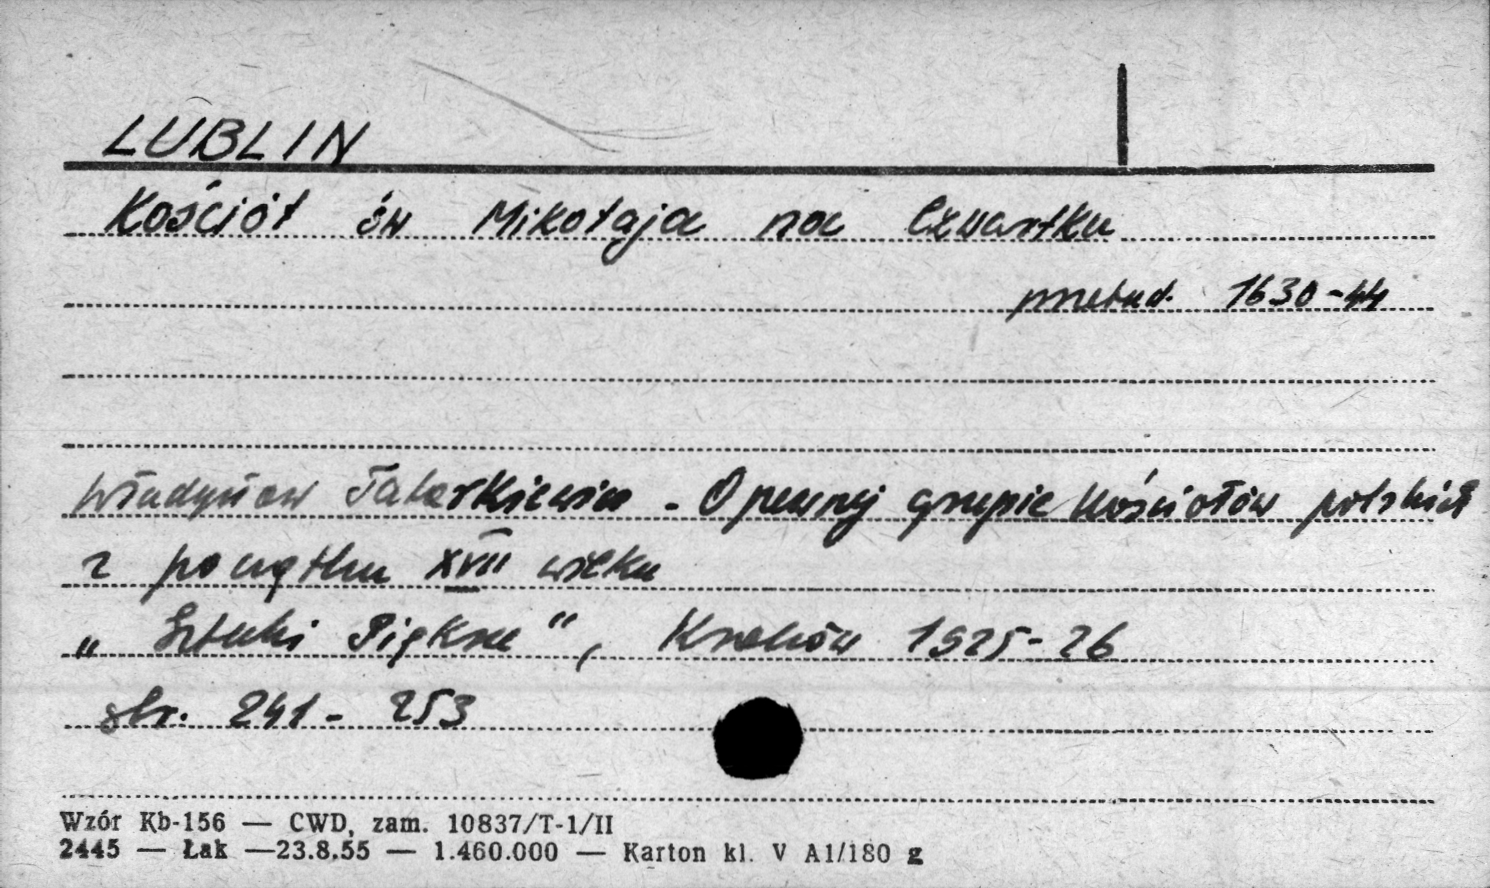 LUBLIN
Kościół św Mikołaja na Czwartku
przebud. 1630-44
Władysław Tatarkiewicz - O pewnej grupie kościołów polskich
z początku XVII wieku
„Sztuki Piękne", Kraków 1925-26
str. 241 - 253
Wzór Kb-156 — CWD, zam. 10837/T-1/II
2445 — Łak —23.8.55 — 1.460.000 — Karton kl. V A1/180 g